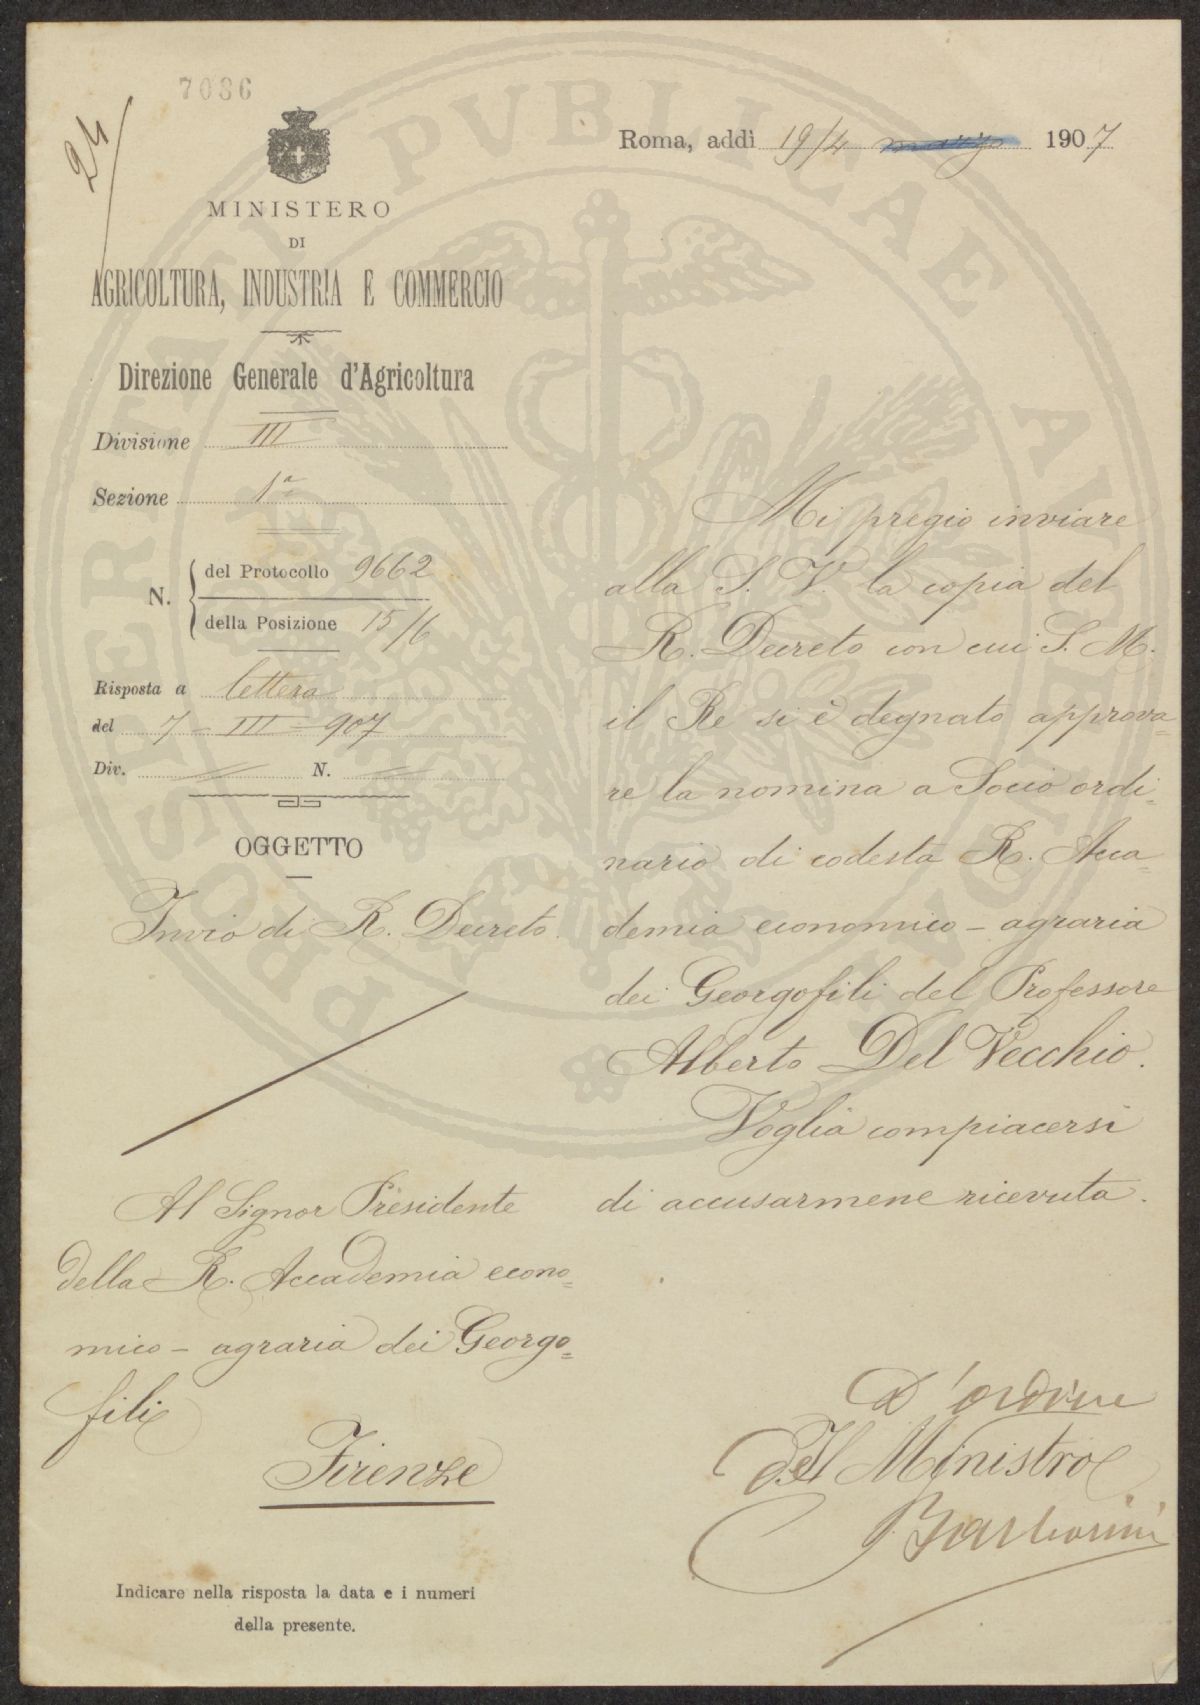 7036
24
MINISTERO
DI
AGRICOLTURA, INDUSTRIA E COMMERCIO
Direzione Generale d'Agricoltura
Divisione III
Sezione 1ª
N. del Protocollo 9662
della Posizione 15/6
Risposta a lettera
del 7 - III - 907
Div. N.
OGGETTO
Invio di R. Decreto
Al Signor Presidente
della R. Accademia econo=
mico - agraria dei Georgo=
fili
Firenze
Indicare nella risposta la data e i numeri
della presente.
Roma, addì 19/4 marzo 1907
Mi pregio inviare
alla S. V. la copia del
R. Decreto con cui S. M.
il Re si è degnato approva=
re la nomina a Socio ordi=
nario di codesta R. Acca=
demia economico - agraria
dei Georgofili del Professore
Alberto Del Vecchio.
Voglia compiacersi
di accusarmene ricevuta.
D'ordine
Del Ministro
PROSPERITATI PUBLICAE AUGENDAE